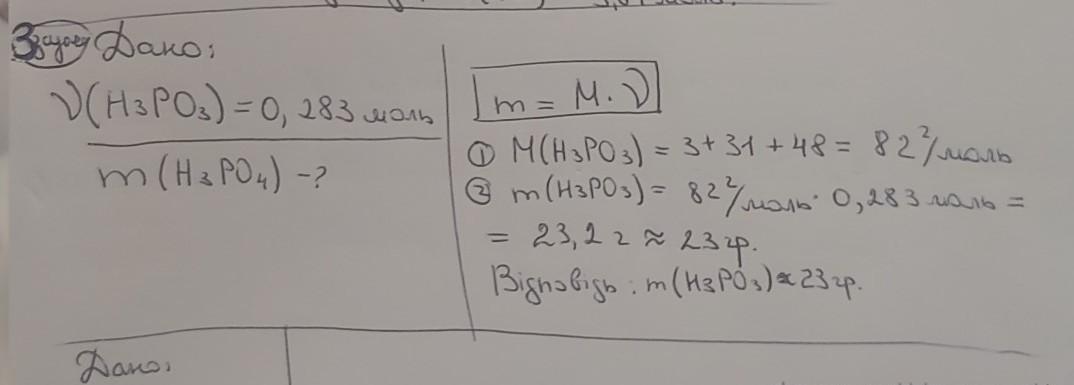 3 задача Дано:
ν(H3PO3) = 0,283 моль
m(H3PO4) -?
m = M · ν
① M(H3PO3) = 3+31+48 = 82 г/моль
② m(H3PO3) = 82 г/моль · 0,283 моль =
= 23,2 г ≈ 23 гр.
Відповідь: m(H3PO3) ≈ 23 гр.
Дано: